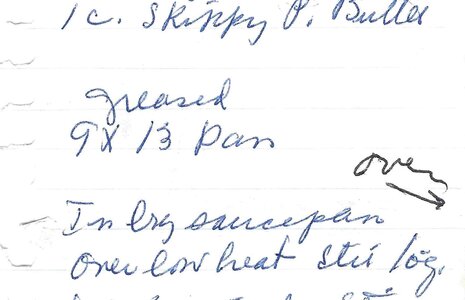 1 c. Skippy P. Butter
greased
9 X 13 pan
over
In lrg saucepan
over low heat stir lög.